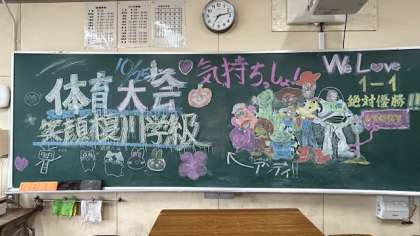 10/25
体育大会
笑顔模川学級
気持ちっしょ!
アンディ!!
We Love
1-1
絶対優勝!!